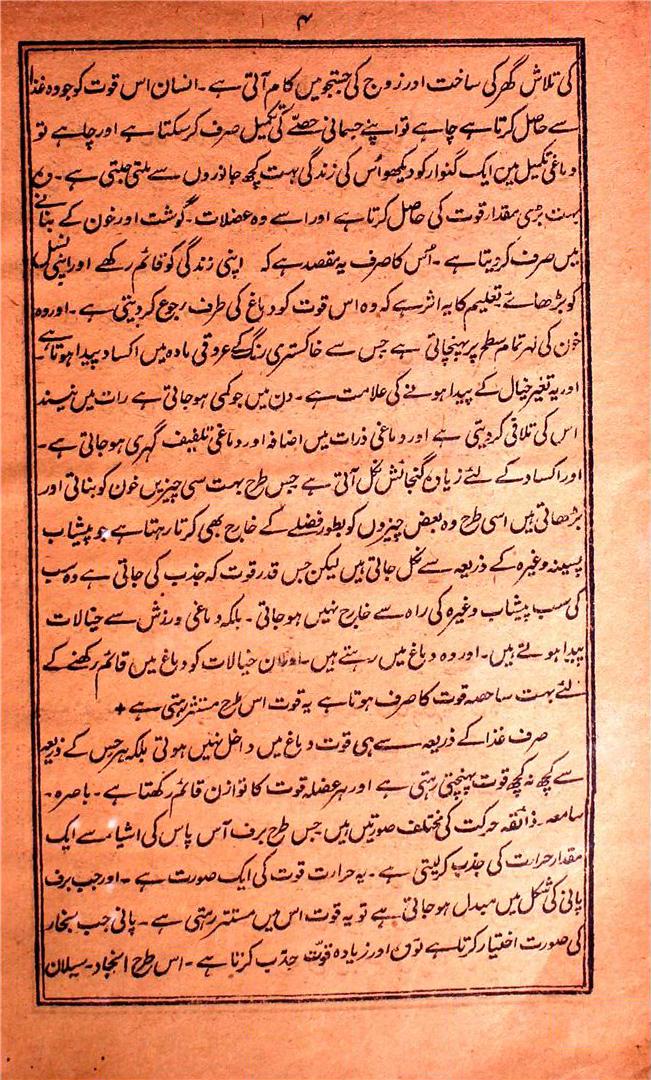 ۴
کی تلاش گھر کی ساخت اور زوج کی جستجو میں کام آتی ہے۔ انسان اس قوت کو جو وہ غذا
سے حاصل کرتا ہے چاہے تو اپنے جسمانی حصّے کی تکمیل صرف کر سکتا ہے اور چاہے تو
دماغی تکمیل میں ایک گنوار کو دیکھو اُس کی زندگی بہت کچھ جانوروں سے ملتی جلتی ہے۔ وہ
بہت بڑی مقدار قوت کی حاصل کرتا ہے اور اسے وہ عضلات۔ گوشت اور خون کے بنانے
میں صرف کر دیتا ہے۔ اُس کا صرف یہ مقصد ہے کہ اپنی زندگی کو قائم رکھے اور اپنی نسل
کو بڑھائے تعلیم کا یہ اثر ہے کہ وہ اس قوت کو دماغ کی طرف رجوع کر دیتی ہے۔ اور وہ
خون کی لہر تمام سطح پر پہنچاتی ہے جس سے خاکستری رنگ کے عروقی مادہ میں اکساد پیدا ہوتا ہے۔
اور یہ تغیر خیال کے پیدا ہونے کی علامت ہے۔ دن میں جو کمی ہو جاتی ہے رات میں نیند
اس کی تلافی کر دیتی ہے اور دماغی ذرات میں اضافہ اور دماغی تلفیف گہری ہو جاتی ہے۔
اور اکساد کے لئے زیادہ گنجائش نکل آتی ہے جس طرح بہت سی چیزیں خون کو بناتی اور
بڑھاتی ہیں اسی طرح وہ بعض چیزوں کو بطور فضلے کے خارج بھی کرتا رہتا ہے جو پیشاب
پسینہ وغیرہ کے ذریعہ سے نکل جاتی ہیں لیکن جس قدر قوت کہ جذب کی جاتی ہے وہ سب
کی سب پیشاب وغیرہ کی راہ سے خارج نہیں ہو جاتی۔ بلکہ دماغی ورزش سے خیالات
پیدا ہوتے ہیں۔ اور وہ دماغ میں رہتے ہیں۔ اور ان خیالات کو دماغ میں قائم رکھنے کے
لئے بہت سا حصہ قوت کا صرف ہوتا ہے یہ قوت اس طرح مستتر رہتی ہے +
صرف غذا کے ذریعہ سے ہی قوت دماغ میں داخل نہیں ہوتی بلکہ ہر حس کے ذریعہ
سے کچھ نہ کچھ قوت پہنچتی رہتی ہے اور ہر عضلہ قوت کا توازن قائم رکھتا ہے۔ باصرہ۔
سامعہ۔ ذائقہ حرکت کی مختلف صورتیں ہیں جس طرح برف آس پاس کی اشیاء سے ایک
مقدار حرارت کی جذب کر لیتی ہے۔ یہ حرارت قوت کی ایک صورت ہے۔ اور جب برف
پانی کی شکل میں مبدل ہو جاتی ہے تو یہ قوت اس میں مستتر رہتی ہے۔ پانی جب بخار
کی صورت اختیار کرتا ہے تو وہ اور زیادہ قوّت جذب کرتا ہے۔ اس طرح انجماد۔ سیلان